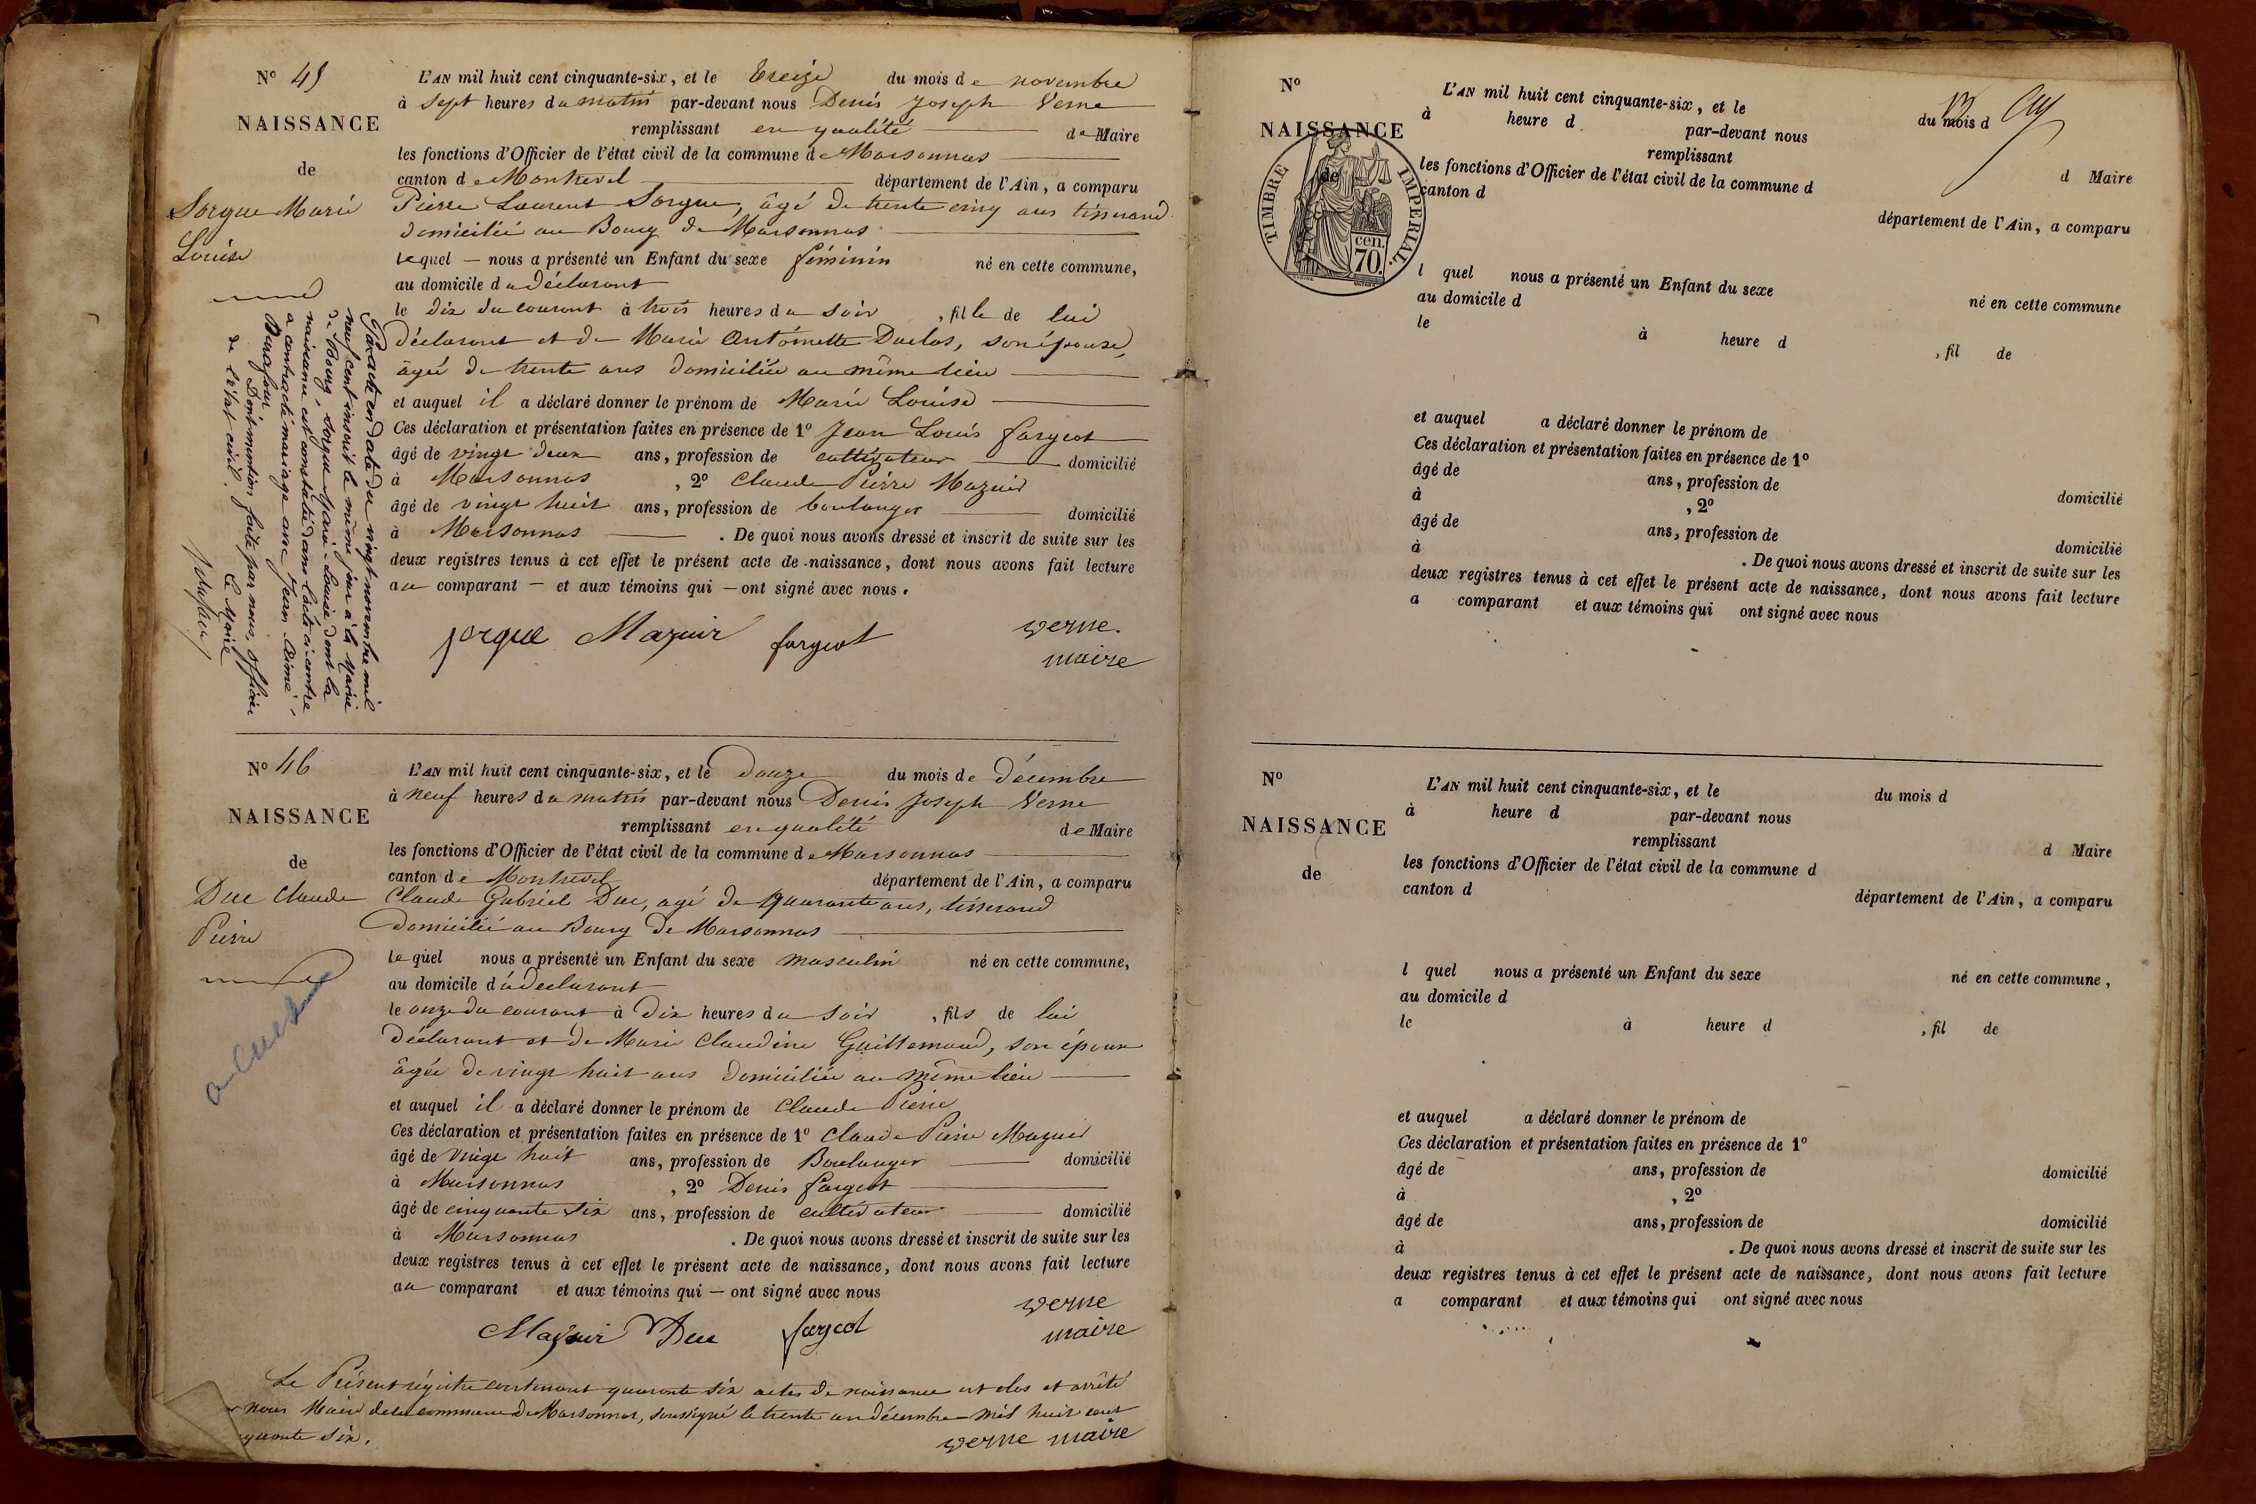 Nº 45
NAISSANCE
de
Sorgue Marie
Louise
L'AN mil huit cent cinquante-six, et le treize du mois de novembre
à sept heures du matin par-devant nous Denis Joseph Verne
remplissant en qualité de Maire
les fonctions d'Officier de l'état civil de la commune de Marsonnas
canton de Montrevel département de l'Ain, a comparu
Pierre Laurent Sorgue, âgé de trente cinq ans tisserand
domicilié au Bourg de Marsonnas
lequel — nous a présenté un Enfant du sexe féminin né en cette commune,
au domicile du déclarant
le dix du courant à trois heures du soir, fille de lui
déclarant et de Marie Antoinette Duclos, son épouse,
âgée de trente ans domiciliée au même lieu
et auquel il a déclaré donner le prénom de Marie Louise
Ces déclaration et présentation faites en présence de 1º Jean Louis fargeot
âgé de vingt deux ans, profession de cultivateur domicilié
à Marsonnas, 2º Claude Pierre Mazuir
âgé de vingt huit ans, profession de boulanger domicilié
à Marsonnas. De quoi nous avons dressé et inscrit de suite sur les
deux registres tenus à cet effet le présent acte de naissance, dont nous avons fait lecture
au comparant — et aux témoins qui — ont signé avec nous.
sorgue Mazuir fargeot verne.
maire
Par acte en date du vingt novembre mil
neuf cent inscrit le même jour à la Mairie
de Bourg, Sorgue Marie-Louise dont la
naissance est constatée dans l'acte ci-contre
a contracté mariage avec Jean Aimé
Dont mention faite par nous, officier
de l'état civil.
Le Maire
Nº 46
NAISSANCE
de
Duc Claude
Pierre
L'AN mil huit cent cinquante-six, et le douze du mois de décembre
à neuf heures du matin par-devant nous Denis Joseph Verne
remplissant en qualité de Maire
les fonctions d'Officier de l'état civil de la commune de Marsonnas
canton de Montrevel département de l'Ain, a comparu
Claude Gabriel Duc, agé de quarante ans, tisserand
domicilié au Bourg de Marsonnas
lequel nous a présenté un Enfant du sexe masculin né en cette commune,
au domicile du déclarant
le onze du courant à dix heures du soir, fils de lui
déclarant et de Marie Claudine Guillemaud, son épouse
âgée de vingt huit ans domiciliée au même lieu
et auquel il a déclaré donner le prénom de Claude Pierre
Ces déclaration et présentation faites en présence de 1º Claude Pierre Mazuir
âgé de vingt huit ans, profession de Boulanger domicilié
à Marsonnas, 2º Denis fargeot
âgé de cinquante six ans, profession de cultivateur domicilié
à Marsonnas. De quoi nous avons dressé et inscrit de suite sur les
deux registres tenus à cet effet le présent acte de naissance, dont nous avons fait lecture
au comparant et aux témoins qui — ont signé avec nous
Mazuir Duc fargeot verne
maire
Le Présent régistre contenant quarante six actes de naissance est clos et arrêté
nous Maire de la commune de Marsonnas, soussigné le trente un décembre mil huit cent
quante six.
verne maire
Nº
NAISSANCE
de
TIMBRE IMPERIAL.
70 cen.
L'AN mil huit cent cinquante-six, et le du mois d
à heure d par-devant nous
remplissant d Maire
les fonctions d'Officier de l'état civil de la commune d
canton d département de l'Ain, a comparu
l quel nous a présenté un Enfant du sexe né en cette commune
au domicile d
le à heure d, fil de
et auquel a déclaré donner le prénom de
Ces déclaration et présentation faites en présence de 1º
âgé de ans, profession de domicilié
à, 2º
âgé de ans, profession de domicilié
à. De quoi nous avons dressé et inscrit de suite sur les
deux registres tenus à cet effet le présent acte de naissance, dont nous avons fait lecture
a comparant et aux témoins qui ont signé avec nous
Nº
NAISSANCE
de
L'AN mil huit cent cinquante-six, et le du mois d
à heure d par-devant nous
remplissant d Maire
les fonctions d'Officier de l'état civil de la commune d
canton d département de l'Ain, a comparu
l quel nous a présenté un Enfant du sexe né en cette commune,
au domicile d
le à heure d, fil de
et auquel a déclaré donner le prénom de
Ces déclaration et présentation faites en présence de 1º
âgé de ans, profession de domicilié
à, 2º
âgé de ans, profession de domicilié
à. De quoi nous avons dressé et inscrit de suite sur les
deux registres tenus à cet effet le présent acte de naissance, dont nous avons fait lecture
a comparant et aux témoins qui ont signé avec nous